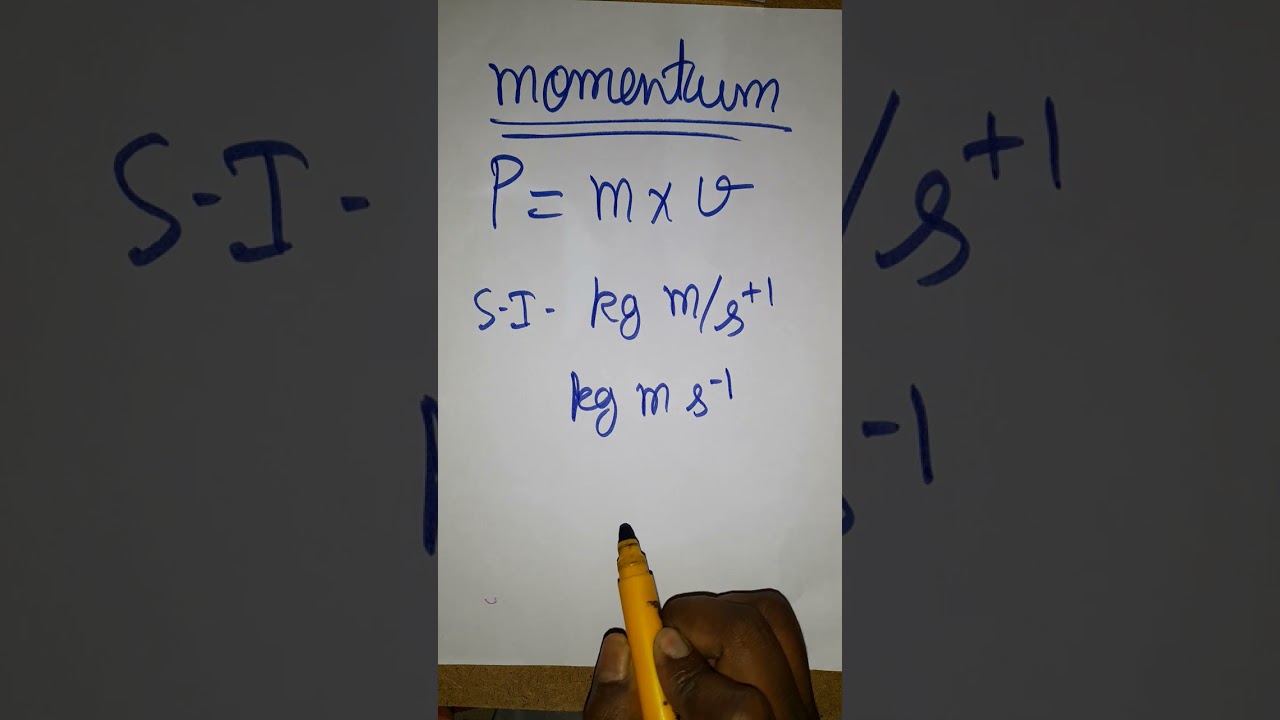 momentum
P = m x v
S-I- kg m/s⁺¹
kg m s⁻¹